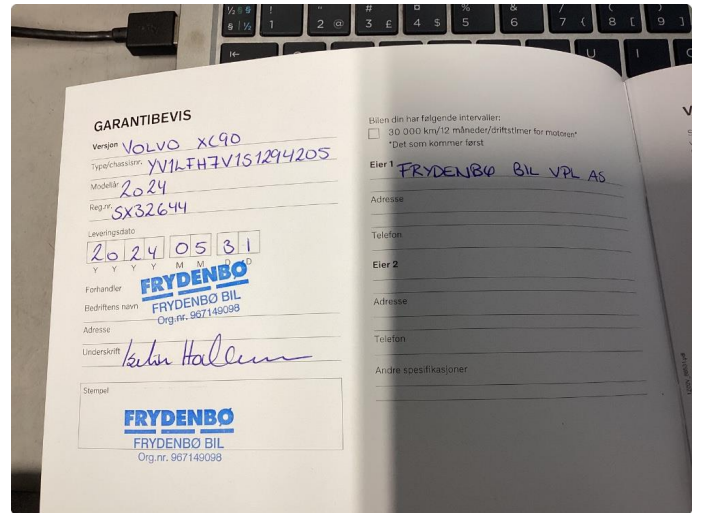 GARANTIBEVIS
Versjon VOLVO XC90
Type/chassisnr. YV1LFH7V1S1294205
Modellår 2024
Reg.nr. SX32644
Leveringsdato
2 0 2 4 0 5 3 1
Y Y Y Y M M D D
Forhandler FRYDENBØ
Bedriftens navn FRYDENBØ BIL
Org.nr. 967149098
Adresse
Underskrift
Stempel
FRYDENBØ
FRYDENBØ BIL
Org.nr. 967149098
Bilen din har følgende intervaller:
30 000 km/12 måneder/driftstimer for motoren*
*Det som kommer først
Eier 1 FRYDENBØ BIL VPL AS
Adresse
Telefon
Eier 2
Adresse
Telefon
Andre spesifikasjoner